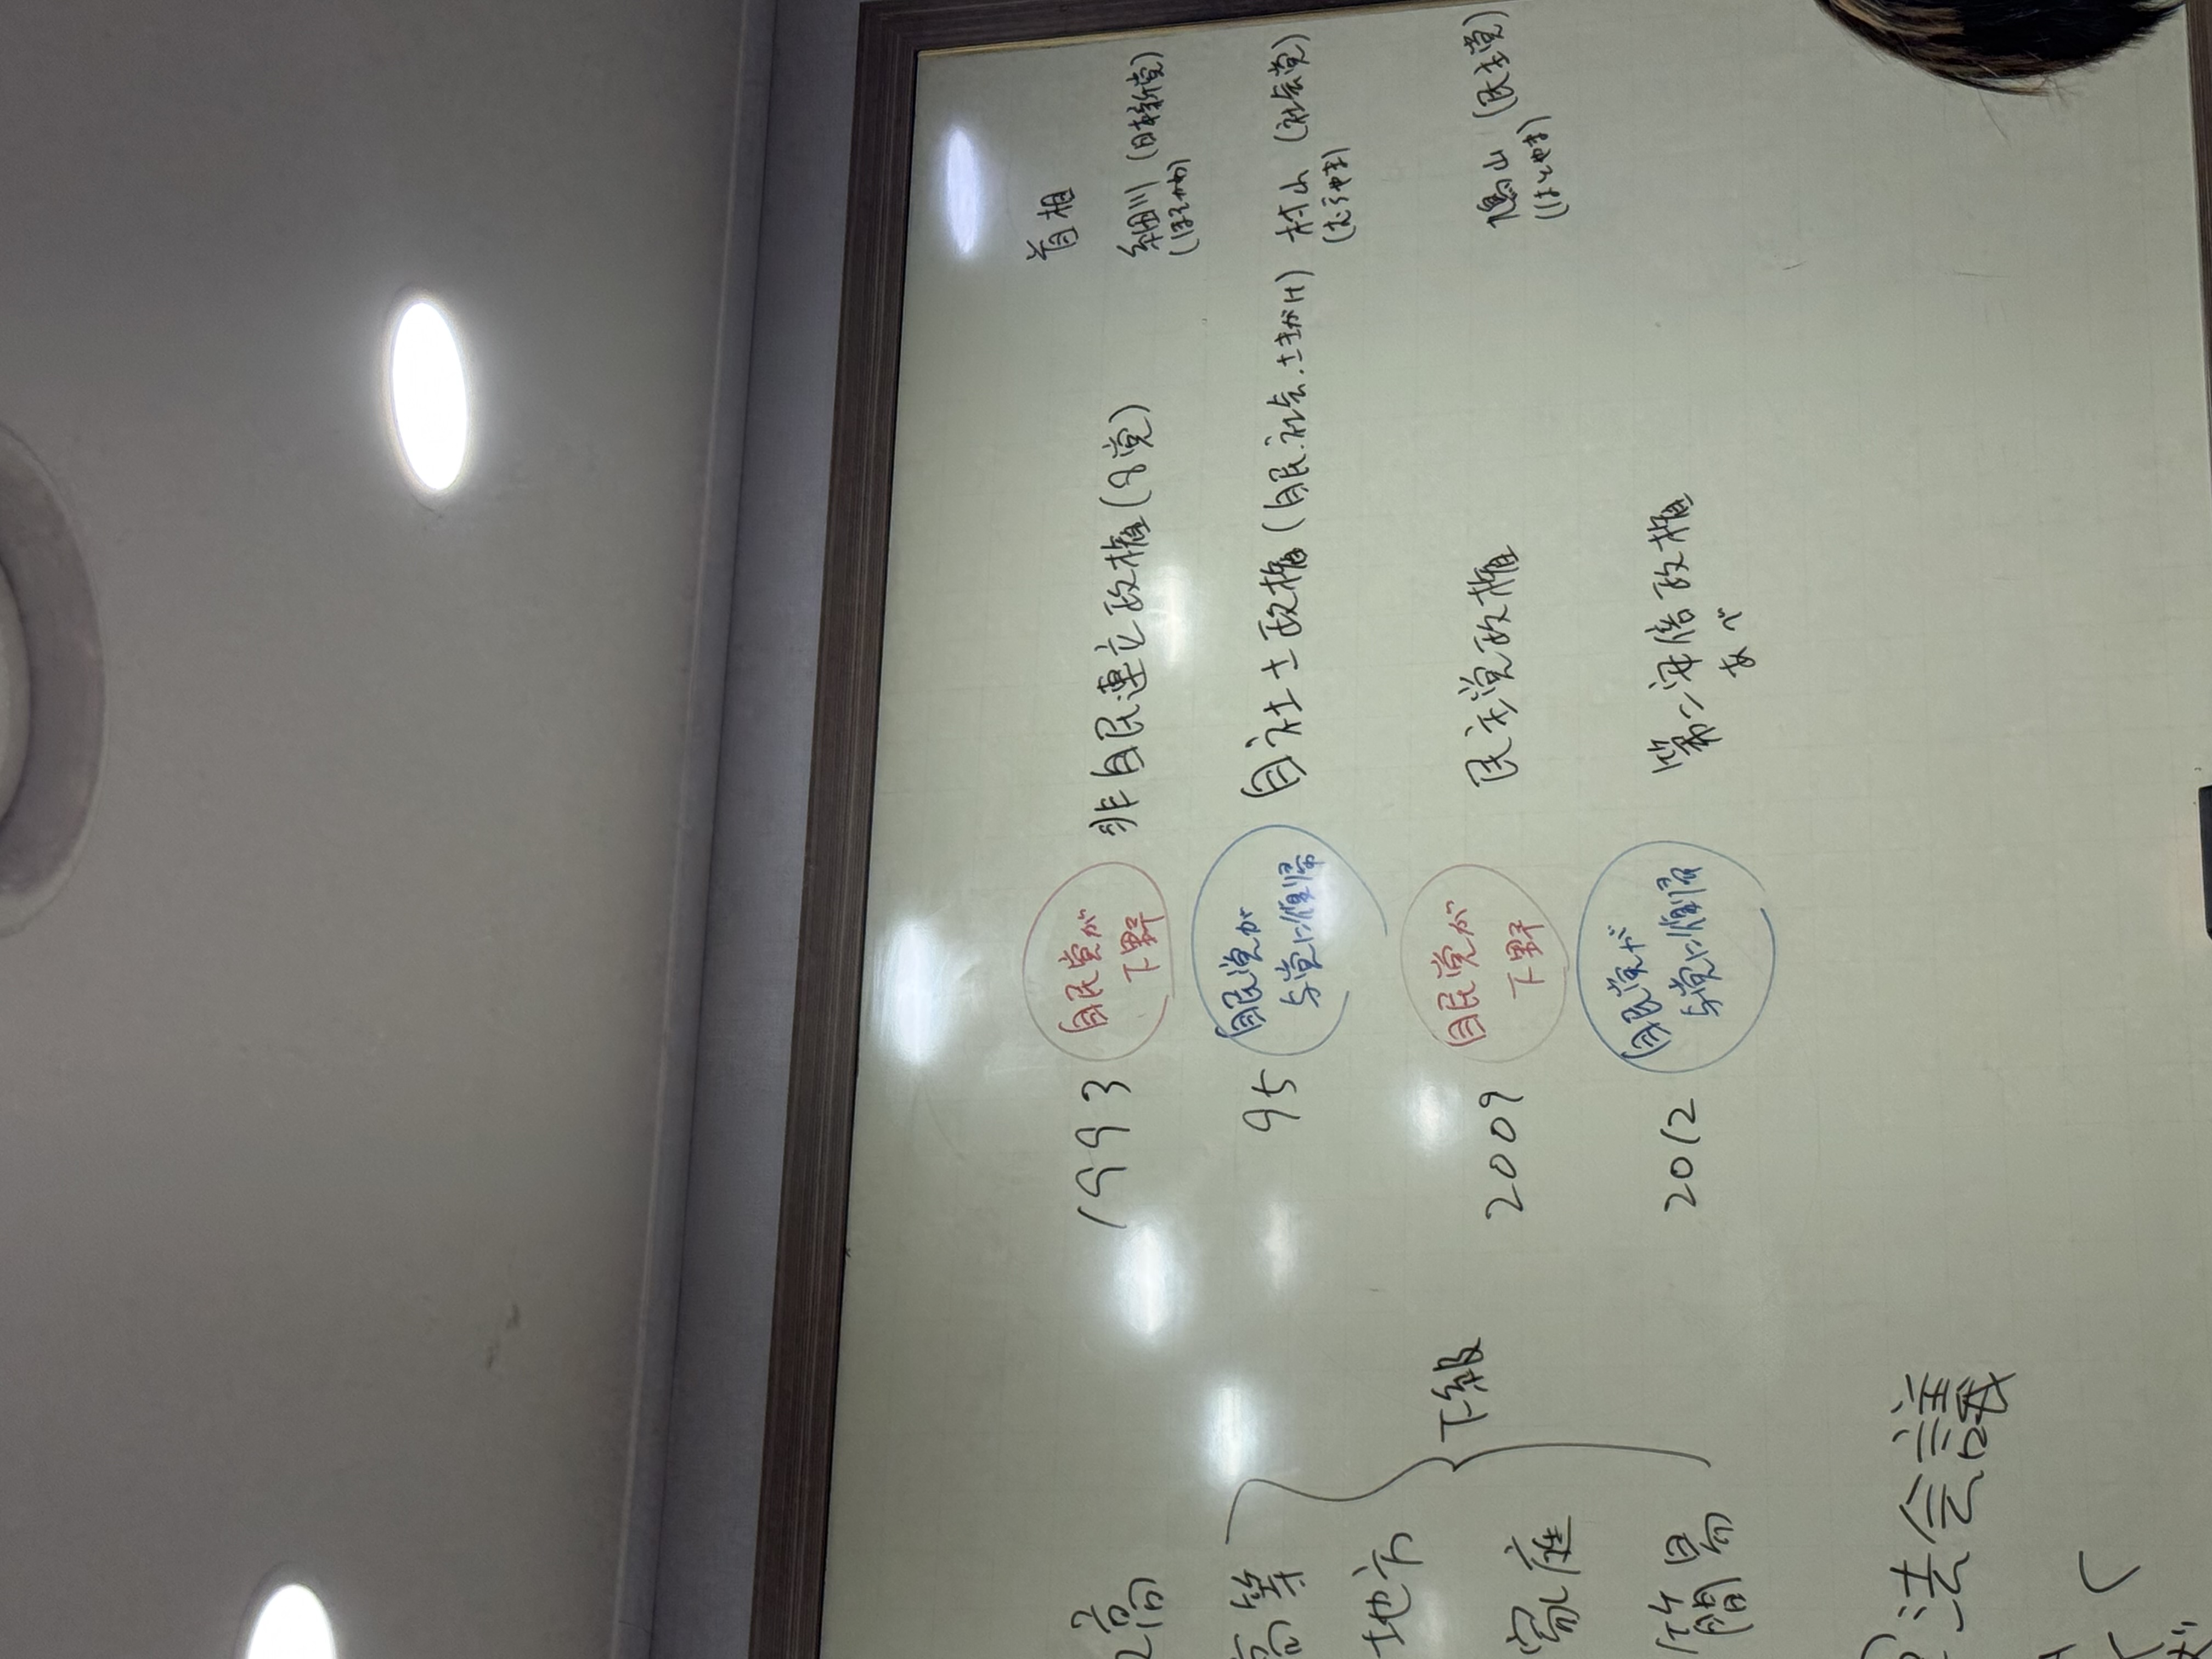 首相
1993 自民党が 下野 非自民連立政権(8党) 細川(日本新党)
(ほそかわ)
95 自民党が 与党に復帰 自社さ政権(自民.社会.さきがけ) 村山(社会党)
(むらやま)
2009 自民党が 下野 民主党政権 鳩山(民主党)
(はとやま)
2012 自民党が 与党に復帰 第二次安倍政権
あべ
高
高等
地方
家庭
簡易
下級
法会議